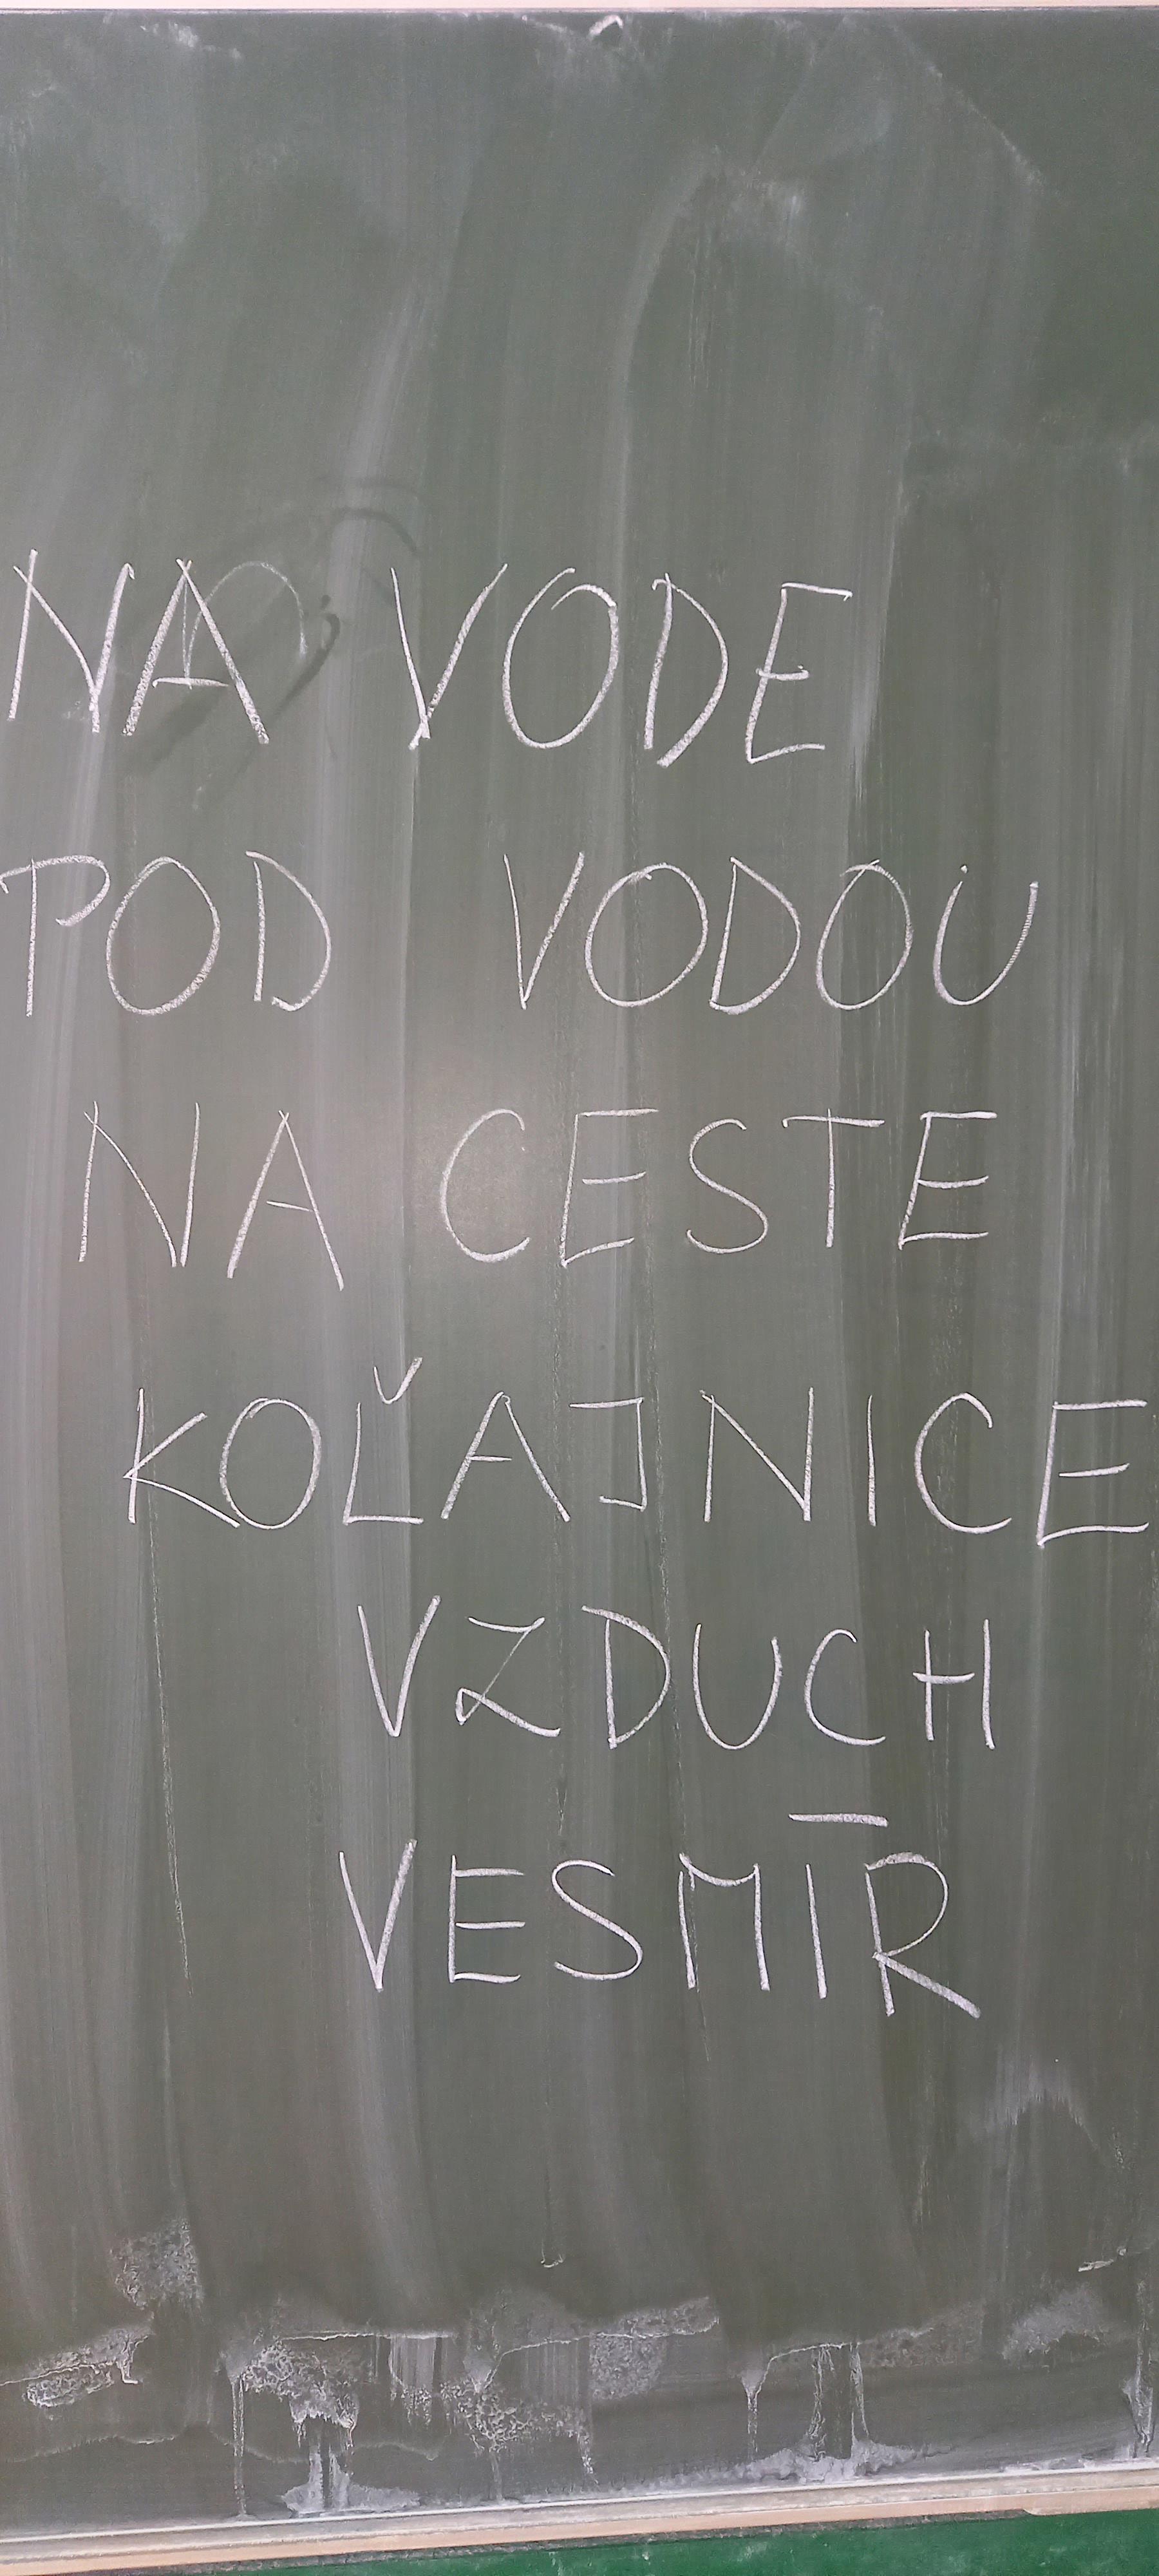 NA VODE
POD VODOU
NA CESTE
KOĽAJNICE
VZDUCH
VESMÍR